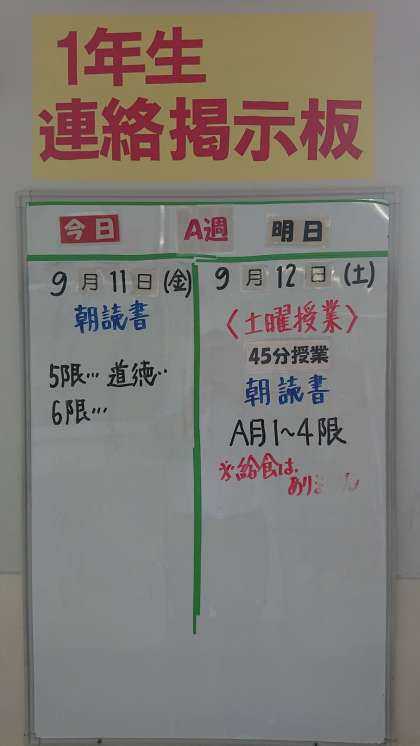 1年生
連絡掲示板
今日 A週 明日
9月11日(金)
朝読書
5限… 道徳…
6限…
9月12日(土)
〈土曜授業〉
45分授業
朝読書
A月1~4限
※給食は、
あり